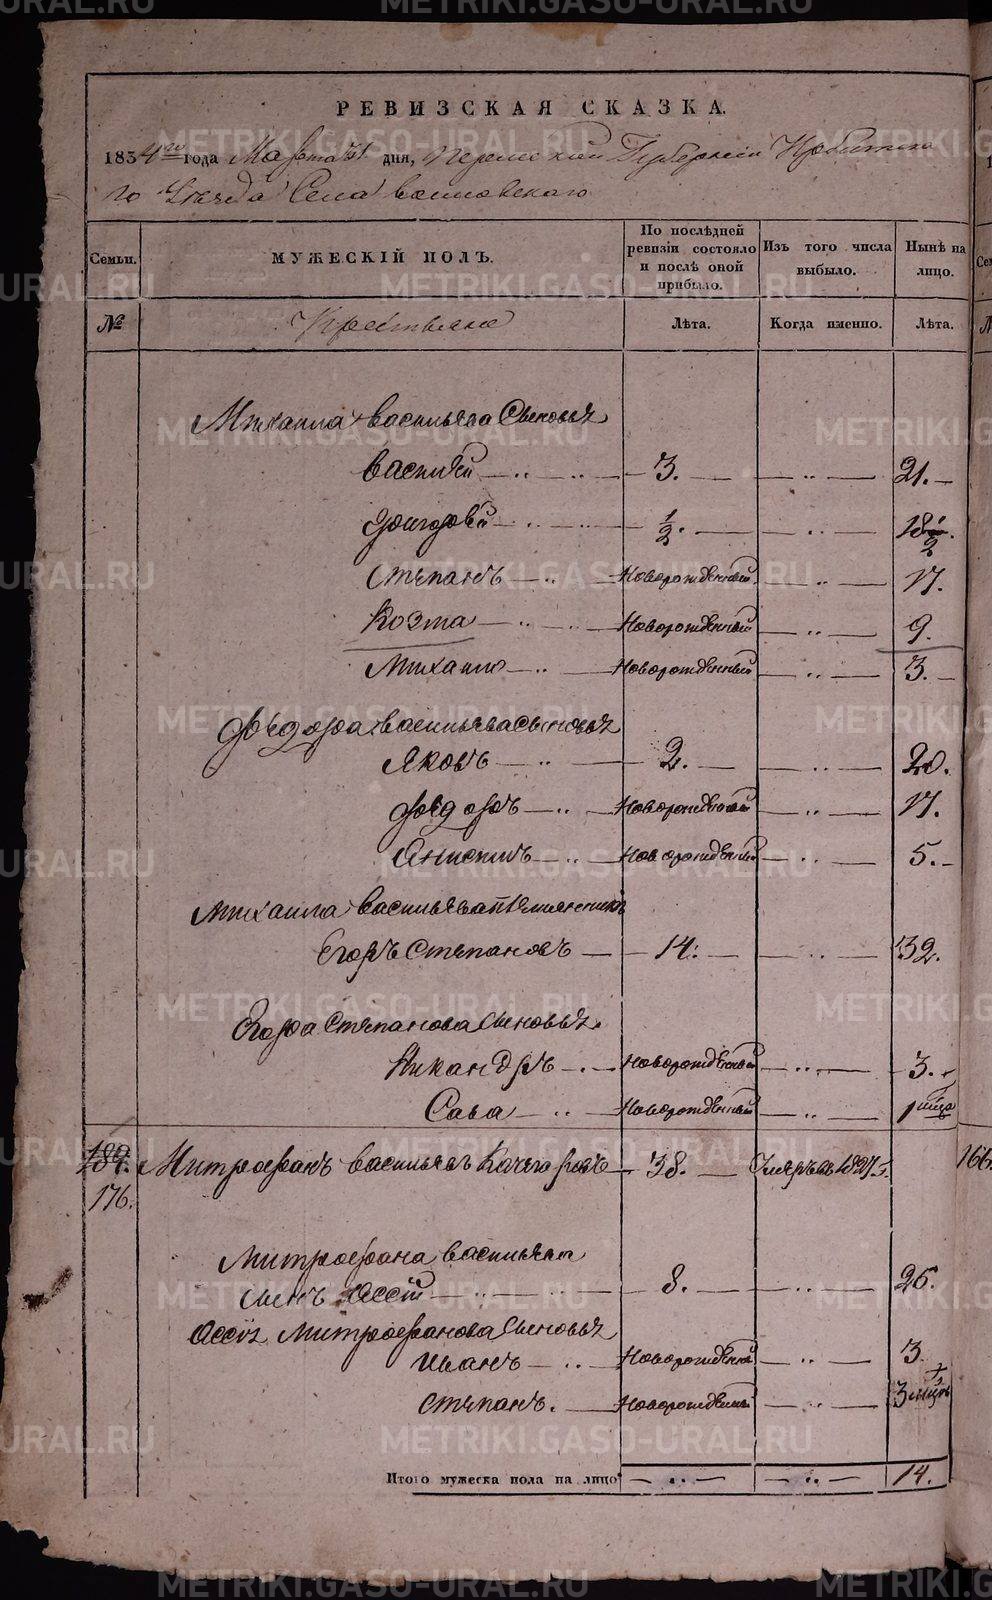 РЕВИЗСКАЯ СКАЗКА.
1834 го года Марта 31 дня, Пермской Губернии Ирбитска
го Уезда Села
Семьи. МУЖЕСКІЙ ПОЛЪ. По послѣдней ревизіи состояло и послѣ оной прибыло. Изъ того числа выбыло. Нынѣ на лицо.
№ Крестьяне Лѣта. Когда именно. Лѣта.
Михаила Васильева Сыновья
Василей 3. 21.
Григорей 1/2. 18 1/2.
Степанъ Новорожденный 17.
Козма Новорожденный 9.
Михаило Новорожденный 3.
Федора Васильева сыновья
Яковъ 2. 20.
Федоръ Новорожденный 17.
Анисимъ Новорожденный 5.
Михаила Васильева племянникъ
Егоръ Степановъ 14. 32.
Егора Степанова сыновья
Никандръ Новорожденный 3.
Сава Новорожденный 1
176. Митрофанъ Васильевъ 38. Умеръ въ 1827 г.
Митрофана Васильева
сынъ 8. 26.
Митрофанова сыновья
Иванъ Новорожденный 3
Степанъ. Новорожденный 3
Итого мужеска пола на лицо 14.
METRIKI.GASO-URAL.RU